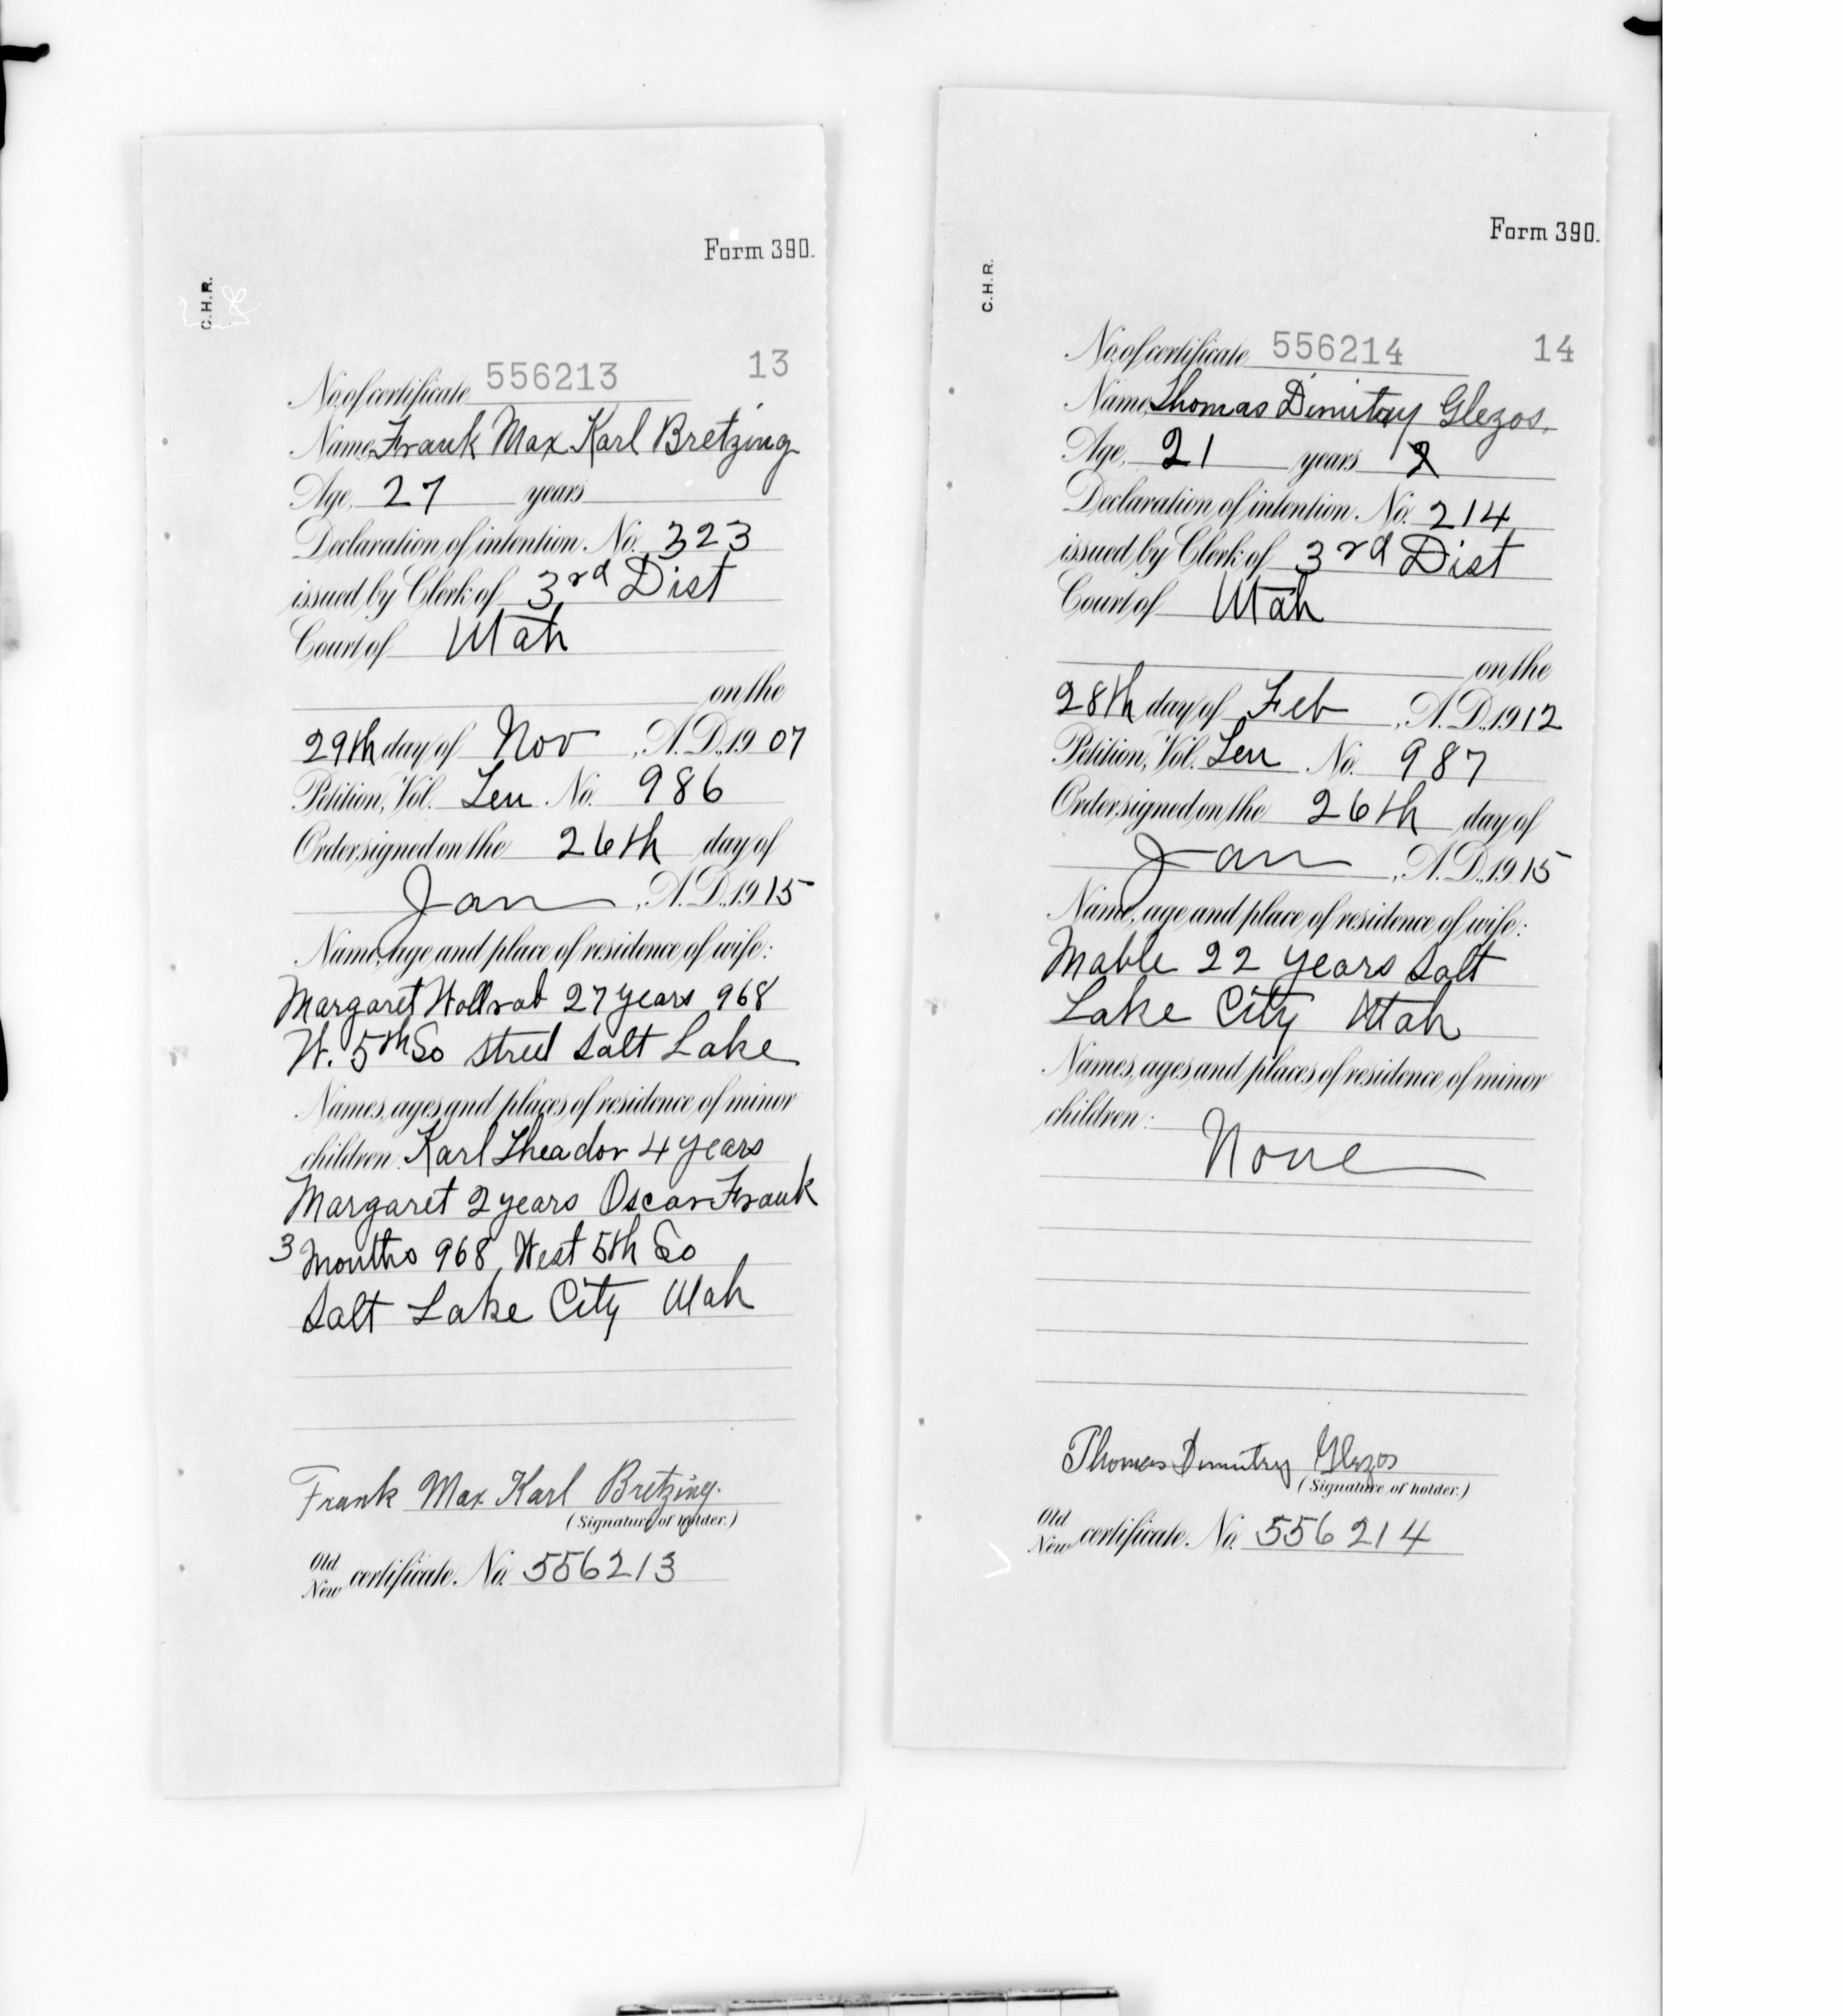 Form 390.
C.H.R.
No. of certificate 556213 13
Name, Frank Max Karl Bretzing
Age, 27 years
Declaration of intention No. 323
issued by Clerk of 3rd Dist
Court of Utah
on the
29th day of Nov , A.D. 1907
Petition, Vol. Ten No. 986
Order signed on the 26th day of
Jan , A.D., 1915
Name, age and place of residence of wife:
Margaret Wollrab 27 years 968
W. 5th So street Salt Lake
Names, ages and places of residence of minor
children: Karl Theador 4 years
Margaret 2 years Oscar Frank
3 months 968 West 5th So
Salt Lake City Utah
Frank Max Karl Bretzing.
(Signature of holder.)
Old
New certificate. No. 556213
Form 390.
C.H.R.
No. of certificate 556214 14
Name, Thomas Dimitry Glezos.
Age, 21 years
Declaration of intention No. 214
issued by Clerk of 3rd Dist
Court of Utah
on the
28th day of Feb , A.D. 1912
Petition, Vol. Ten No. 987
Order signed on the 26th day of
Jan , A.D., 1915
Name, age and place of residence of wife:
Mable 22 years Salt
Lake City Utah
Names, ages and places of residence of minor
children:
None
Thomas Dimitry Glezos
(Signature of holder.)
Old
New certificate. No. 556214